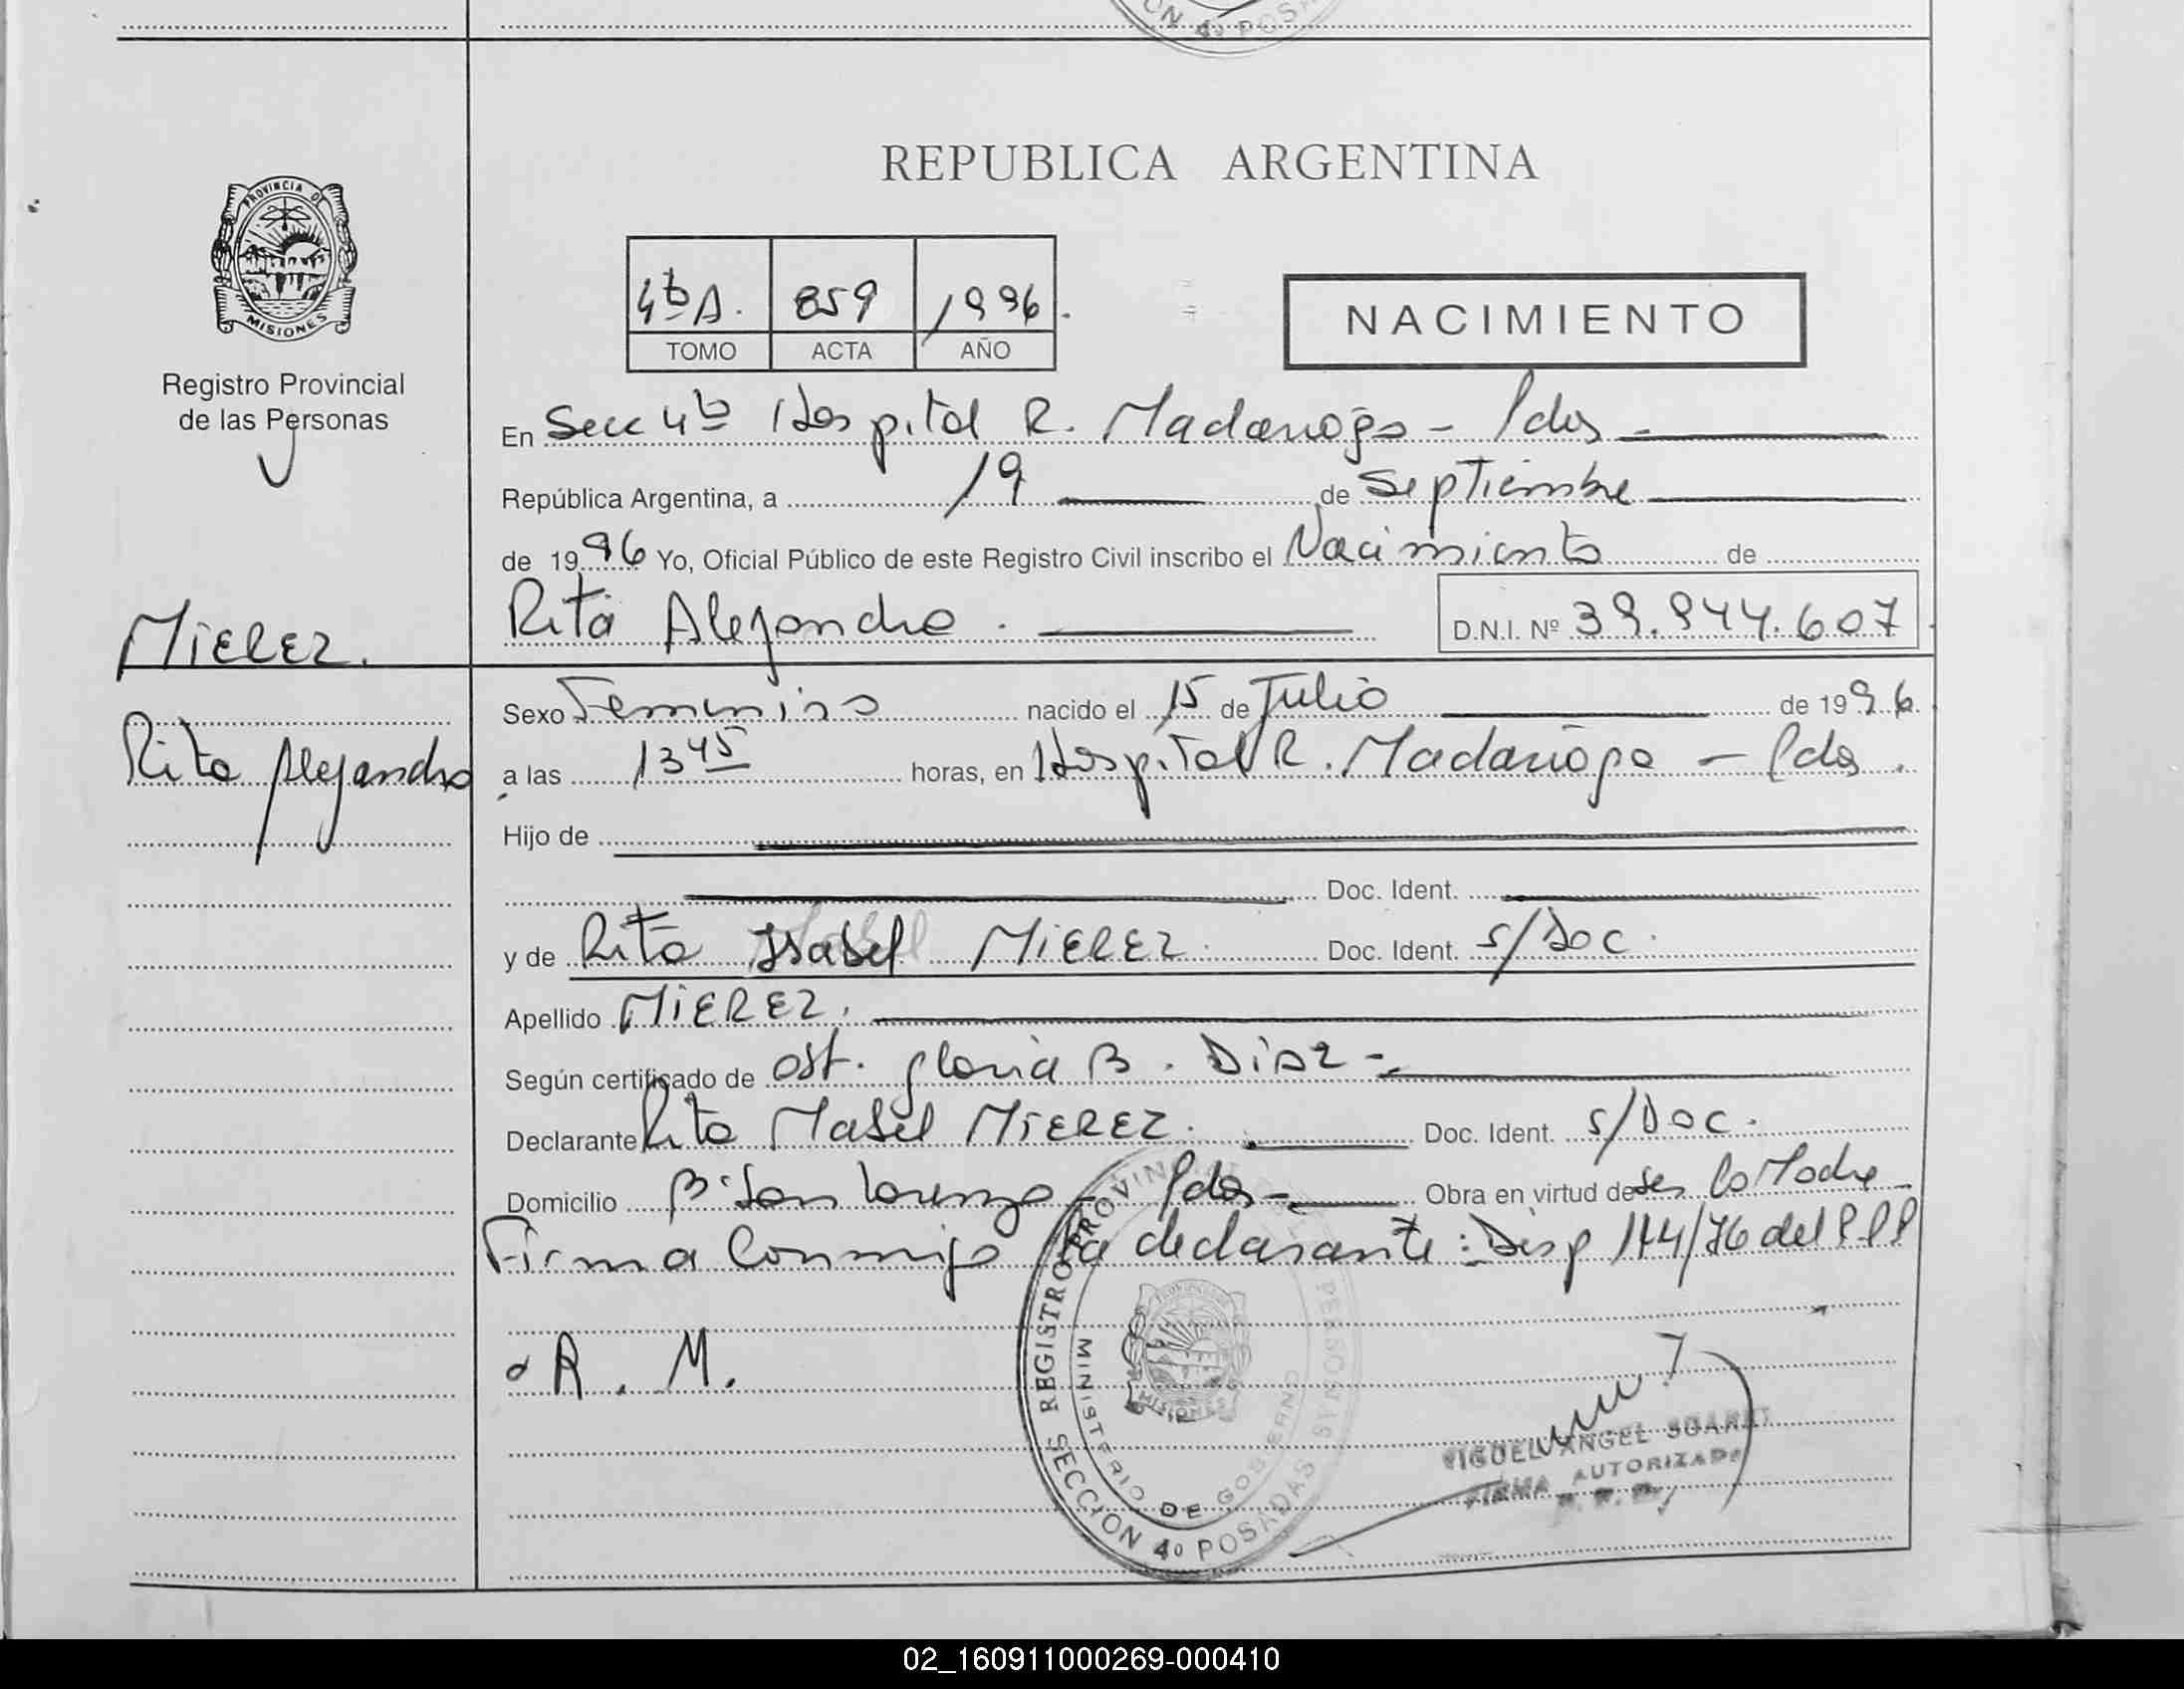 CION 4º POSA
REPUBLICA ARGENTINA
PROVINCIA DE
MISIONES
Registro Provincial
de las Personas
4tº A. 859 1996.
TOMO ACTA AÑO
NACIMIENTO
En Secc 4tº Hospital R. Madariaga - Pdas -
República Argentina, a 19 de Septiembre
de 1996 Yo, Oficial Público de este Registro Civil inscribo el Nacimiento de
Rita Alejandra. D.N.I. Nº 39.944.607
MIEREZ.
Rita Alejandra
Sexo Femenino nacido el 15 de Julio de 1996.
a las 13 45 horas, en Hospital R. Madariaga - Pdas.
Hijo de
Doc. Ident.
y de Rita Isabel MIEREZ. Doc. Ident. s/Doc.
Apellido MIEREZ.
Según certificado de Ost. Gloria B. Diaz -
Declarante Rita Mabel MIEREZ. Doc. Ident. s/Doc.
Domicilio Bº San Lorenzo - Pdas - Obra en virtud de ser la Madre
Firma Conmigo la declarante: Disp 144/76 del RPP
R. M.
REGISTRO PROVINCIAL PERSONAS
MINISTERIO DE GOBIERNO
MISIONES
SECCION 4º POSADAS
MIGUEL ANGEL
FIRMA AUTORIZADA
02_160911000269-000410